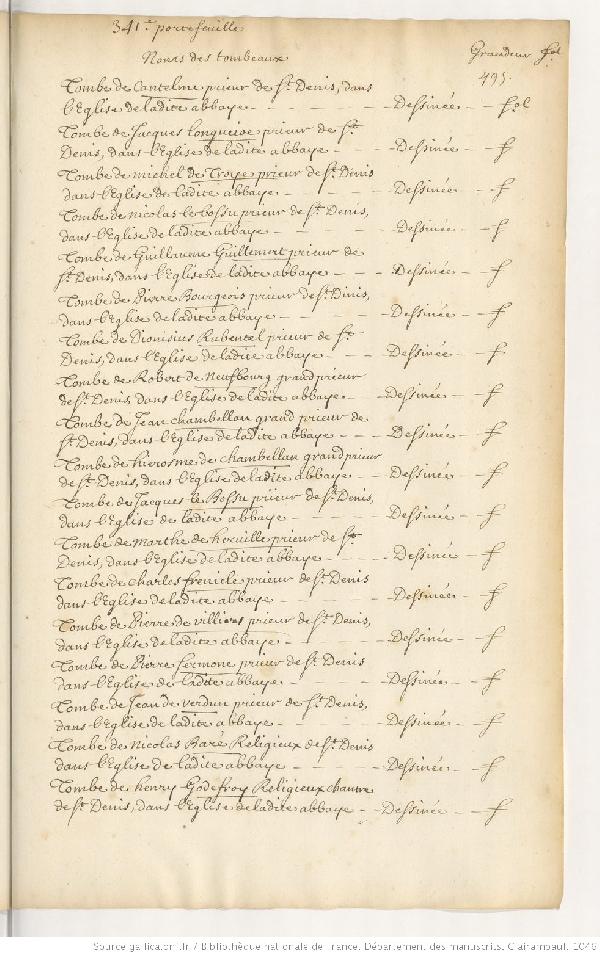 341e portefeuille
Noms des tombeaux Grandeur fol
495.
Tombe de Cantelme prieur de St. Denis, dans
l'Eglise de ladite abbaye - - - - Dessinée - - fol
Tombe de Jacques Longueioe prieur de St.
Denis, dans l'Eglise de ladite abbaye - - - Dessinée - - f
Tombe de michel de Troye prieur de St. Denis
dans l'Eglise de ladite abbaye - - - - Dessinée - - f
Tombe de nicolas le bossu prieur de St. Denis,
dans l'Eglise de ladite abbaye - - - - Dessinée - - f
Tombe de Guillaume Guillemert prieur de
St. Denis, dans l'Eglise de ladite abbaye - - - Dessinée - - f
Tombe de Pierre Bourgeois prieur de St. Dinis,
dans l'Eglise de ladite abbaye - - - - Dessinée - - f
Tombe de Dionisius Rubentel prieur de St.
Denis, dans l'Eglise de ladite abbaye - - - Dessinée - - f
Tombe de Robert de Neufbourg grand prieur
de St. Denis, dans l'Eglise de ladite abbaye - - Dessinée - - f
Tombe de Jean chambellan grand prieur de
St. Denis, dans l'Eglise de ladite abbaye - - - Dessinée - - f
Tombe de hierosme de chambellan grand prieur
de St. Denis, dans l'Eglise de ladite abbaye - - Dessinée - - f
Tombe de Jacques le Bossu prieur de St. Denis,
dans l'Eglise de ladite abbaye - - - - Dessinée - - f
Tombe de marthe de prieur de St.
Denis, dans l'Eglise de ladite abbaye - - - Dessinée - - f
Tombe de charles frericle prieur de St. Denis
dans l'Eglise de ladite abbaye - - - - Dessinée - - f
Tombe de Pierre de villiers prieur de St. Denis,
dans l'Eglise de ladite abbaye - - - - Dessinée - - f
Tombe de Pierre fermone prieur de St. Denis
dans l'Eglise de ladite abbaye - - - - Dessinée - - f
Tombe de Jean de verdun prieur de St. Denis,
dans l'Eglise de ladite abbaye - - - - Dessinée - - f
Tombe de Nicolas Baré Religieux de St. Denis
dans l'Eglise de ladite abbaye - - - - Dessinée - - f
Tombe de henry Godefroy Religieux chantre
de St. Denis, dans l'Eglise de ladite abbaye - - Dessinée - - f
Source gallica.bnf.fr / Bibliothèque nationale de France. Département des manuscrits. Clairambault 1046